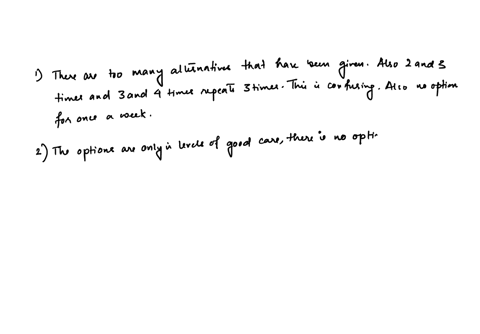 1) There are too many alternatives that have been given. Also 2 and 3
times and 3 and 4 times repeats 3 times. This is confusing. Also no option
for once a week.
2) The options are only in levels of good care, there is no opti